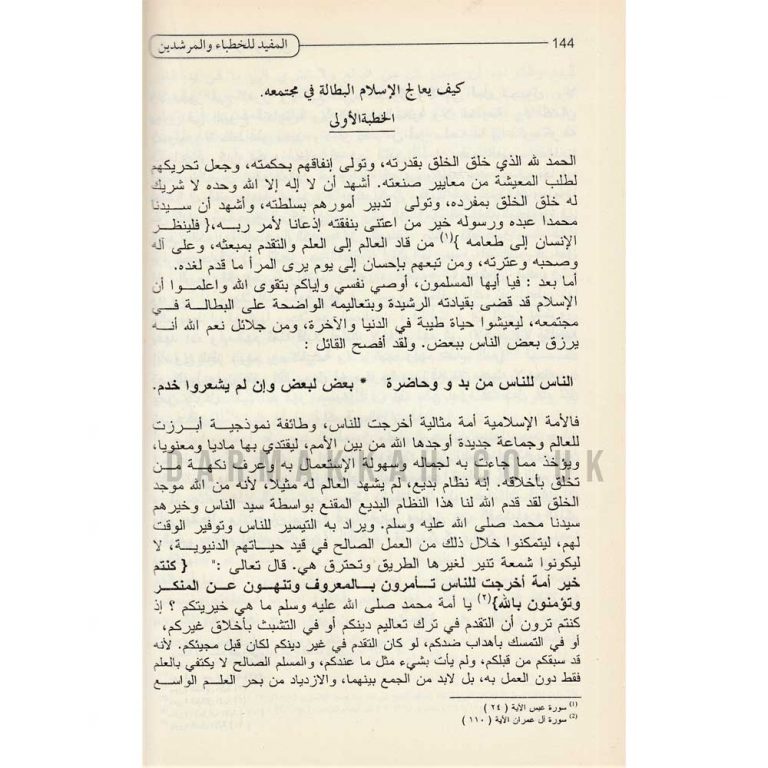 144
المفيد للخطباء والمرشدين
كيف يعالج الإسلام البطالة في مجتمعه.
الخطبة الأولى
الحمد لله الذي خلق الخلق بقدرته، وتولى إنفاقهم بحكمته، وجعل تحريكهم
لطلب المعيشة من معايير صنعته. أشهد أن لا إله إلا الله وحده لا شريك
له خلق الخلق بمفرده، وتولى تدبير أمورهم بسلطته، وأشهد أن سيدنا
محمدا عبده ورسوله خير من اعتنى بنفقته إذعانا لأمر ربه،{ فلينظر
الإنسان إلى طعامه }(١) من قاد العالم إلى العلم والتقدم بمبعثه، وعلى آله
وصحبه وعترته، ومن تبعهم بإحسان إلى يوم يرى المرأ ما قدم لغده.
أما بعد : فيا أيها المسلمون، أوصي نفسي وإياكم بتقوى الله واعلموا أن
الإسلام قد قضى بقيادته الرشيدة وبتعاليمه الواضحة على البطالة في
مجتمعه، ليعيشوا حياة طيبة في الدنيا والآخرة، ومن جلائل نعم الله أنه
يرزق بعض الناس ببعض. ولقد أفصح القائل :
الناس للناس من بد و وحاضرة * بعض لبعض وإن لم يشعروا خدم.
فالأمة الإسلامية أمة مثالية أخرجت للناس، وطائفة نموذجية أبرزت
للعالم وجماعة جديدة أوجدها الله من بين الأمم، ليقتدي بها ماديا ومعنويا،
ويؤخذ مما جاءت به لجماله وسهولة الإستعمال به وأعرف نكهة لمن
تخلق بأخلاقه. إنه نظام بديع، لم يشهد العالم له مثيلا، لأنه من الله موجد
الخلق لقد قدم الله لنا هذا النظام البديع المقنع بواسطة سيد الناس وخيرهم
سيدنا محمد صلى الله عليه وسلم. ويراد به التيسير للناس وتوفير الوقت
لهم، ليتمكنوا خلال ذلك من العمل الصالح في قيد حياتهم الدنيوية، لا
ليكونوا شمعة تنير لغيرها الطريق وتحترق هي. قال تعالى :" { كنتم
خير أمة أخرجت للناس تأمرون بالمعروف وتنهون عن المنكر
وتؤمنون بالله}(٢) يا أمة محمد صلى الله عليه وسلم ما هي خيريتكم ؟ إذ
كنتم ترون أن التقدم في ترك تعاليم دينكم أو في التشبث بأخلاق غيركم،
أو في التمسك بأهداب ضدكم، لو كان التقدم في غير دينكم لكان قبل مجيئكم. لأنه
قد سبقكم من قبلكم، ولم يأت بشيء مثل ما عندكم، والمسلم الصالح لا يكتفي بالعلم
فقط دون العمل به، بل لابد من الجمع بينهما، والازدياد من بحر العلم الواسع
(١) سورة عبس الآية ( ٢٤ )
(٢) سورة آل عمران الآية ( ١١٠ )
DARMAKKAH.CO.UK